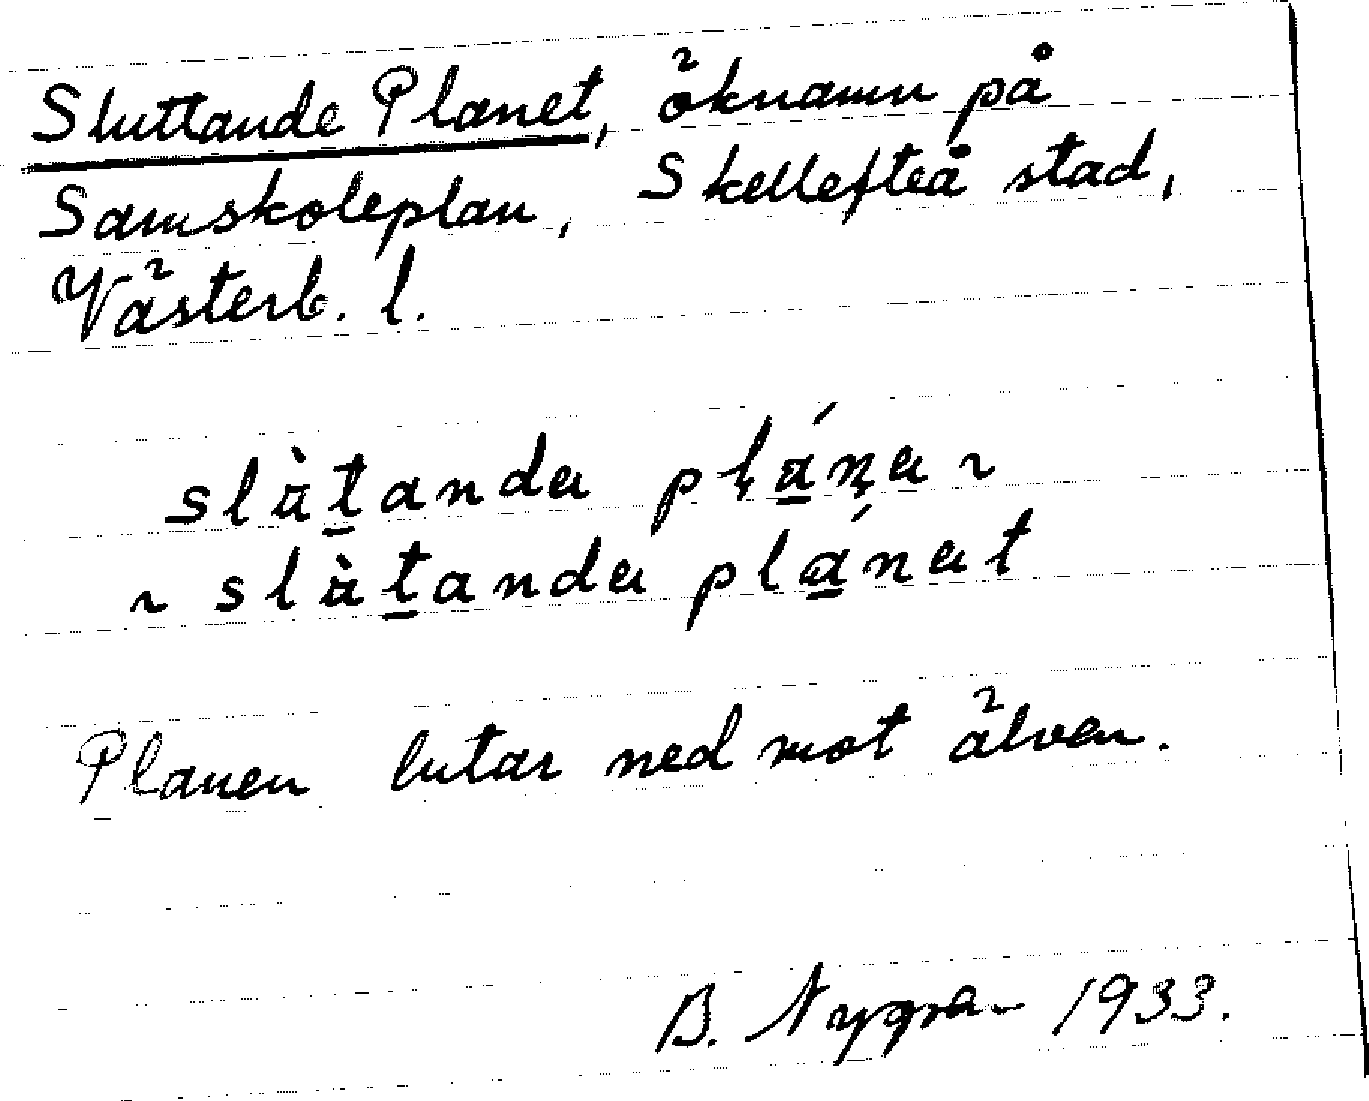 Sluttande Planet, öknamn på
Samskoleplan, Skellefteå stad,
Västerb. l.
slùtandɐ pláŋɐ ~
~ slùtandɐ plánɐt
Planen lutar ned mot älven.
B. Nygren 1933.